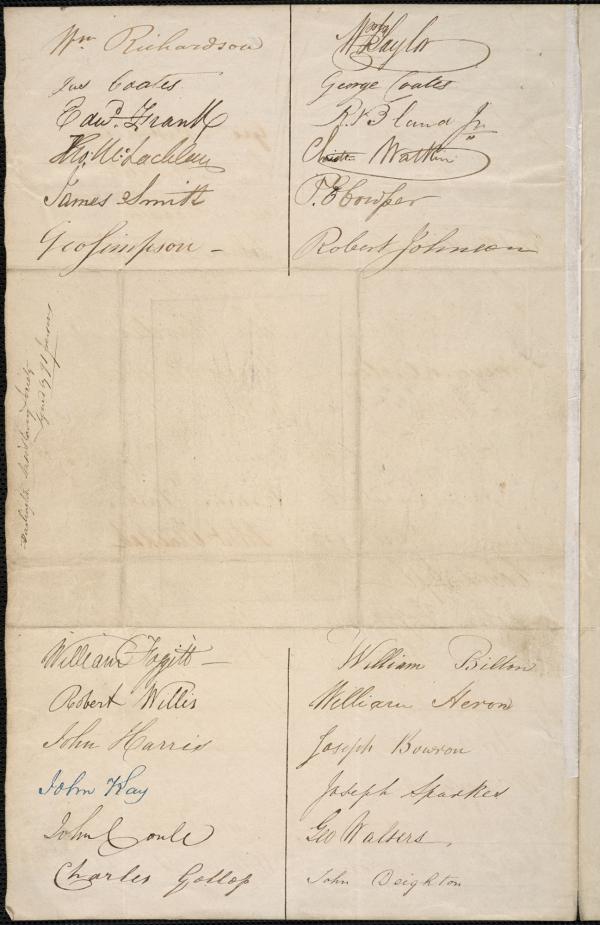 Wm Richardson
Jas Coates
Edwd. Frank
Thos. McLachlan
James Smith
Geo Simpson –
Taylor
George Coates
R. Bland Jr
Watkin
T. E Cowper
Robert Johnson
Darlington Society
Signed by 98 persons
William –
Robert Willis
John Harris
John Kay
John Coule
Charles Gollop
William Bilton
William Heron
Joseph Bowron
Joseph Sparkes
Geo Walters.
John Deighton